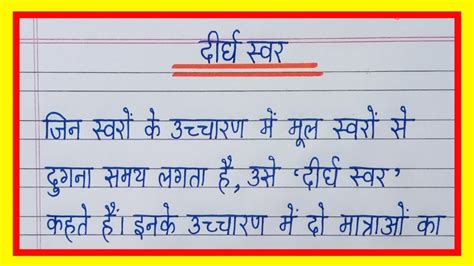 दीर्घ स्वर
जिन स्वरों के उच्चारण में मूल स्वरों से
दुगना समय लगता है, उसे ‘दीर्घ स्वर’
कहते हैं। इनके उच्चारण में दो मात्राओं का